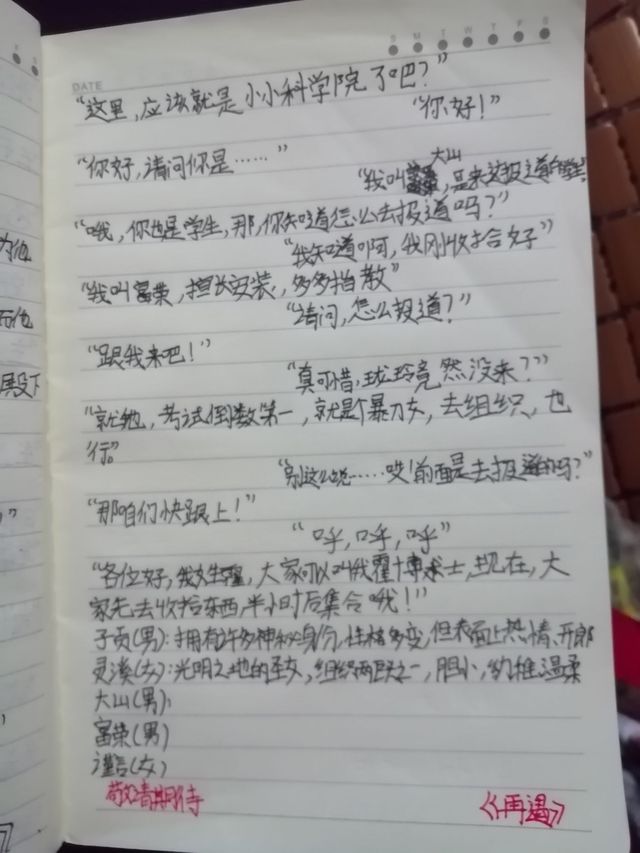 S M T W T F S
DATE
“这里,应该就是小小科学院了吧?”
“你好!”
“你好,请问你是……”
“我叫大山,是来这报道的学生”
“哦,你也是学生,那,你知道怎么去报道吗?”
“我知道啊,我刚收拾好”
“我叫富荣,擅长安装,多多指教”
“请问,怎么报道?”
“跟我来吧!”
“真可惜,珑玲竟然没来?”
“就她,考试倒数第一,就是个暴力女,去组织,也
行。”
“别这么说……哎!前面是去报道的吗?”
“那咱们快跟上!”
“呼,呼,呼”
“各位好,我姓霍,大家可以叫我霍博士,现在,大
家先去收拾东西,半小时后集合哦!”
子贡(男):拥有许多神秘身份,性格多变,但表面上热情、开郎
灵溪(女):光明之地的圣女,组织两跃之一,胆小,幼稚、温柔
大山(男):
富荣(男)
谨言(女)
敬请期待
《再遇》
殿下